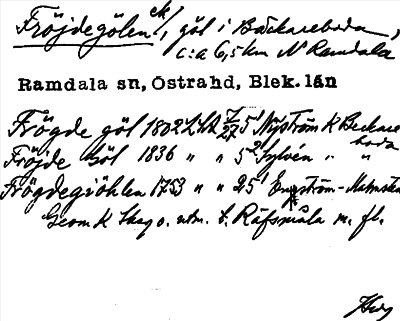 Fröjdegölen ek/, göl i Bäckareboda,
c:a 6,5 km N Ramdala
Ramdala sn, Östrahd, Blek. län
Frögde göl 1802 LSA 7/27 5¹ Nyström K Beckareboda
Fröjde göl 1836 " " 5² Sylvén " "
Frögdegiöhlen 1753 " " 25¹ Engström-Malmsten
Geom K Skog o. utm. t. Räfsmåla m. fl.